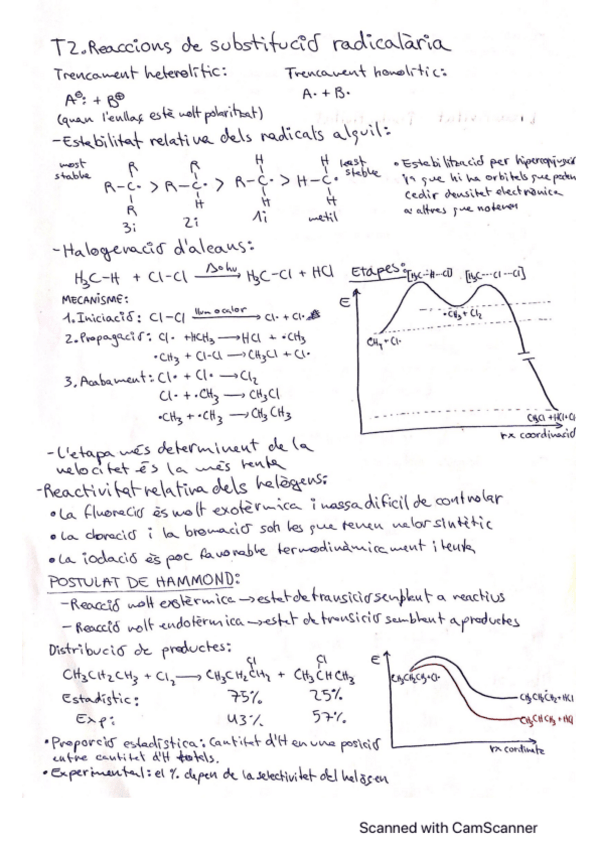 T2. Reaccions de substitució radicalària
Trencament heterolític: Trencament homolític:
A⊖: + B⊕ A· + B·
(quan l'enllaç està molt polaritzat)
- Estabilitat relativa dels radicals alquil:
most stable R-C· > R-C· > R-C· > H-C· least stable
R R H H
R H H H
3i 2i 1i metil
• Estabilització per hiperconjugació
ja que hi ha orbitals que poden
cedir densitat electrònica
a altres que no tenen
- Halogenació d'alcans:
H₃C-H + Cl-Cl Δ o hν → H₃C-Cl + HCl
MECANISME:
1. Iniciació: Cl-Cl llum o calor → Cl· + Cl·
2. Propagació: Cl· + HCH₃ → HCl + ·CH₃
·CH₃ + Cl-Cl → CH₃Cl + Cl·
3. Acabament: Cl· + Cl· → Cl₂
Cl· + ·CH₃ → CH₃Cl
·CH₃ + ·CH₃ → CH₃CH₃
Etapes:
[H₃C--H--Cl] [H₃C---Cl--Cl]
E
·CH₃ + Cl₂
CH₄ + Cl·
CH₃Cl + HCl + Cl
rx coordinació
- L'etapa més determinant de la
velocitat és la més lenta
- Reactivitat relativa dels halògens:
• La fluoració és molt exotèrmica i massa difícil de controlar
• La cloració i la bromació són les que tenen valor sintètic
• La iodació és poc favorable termodinàmicament i lenta
POSTULAT DE HAMMOND:
- Reacció molt exotèrmica → estat de transició semblant a reactius
- Reacció molt endotèrmica → estat de transició semblant a productes
Distribució de productes:
Cl Cl
CH₃CH₂CH₃ + Cl₂ → CH₃CH₂CH₂ + CH₃CHCH₃
Estadístic: 75% 25%
Exp: 43% 57%
E
CH₃CH₂CH₃ + Cl·
CH₃CH₂CH₂ + HCl
CH₃CHCH₃ + HCl
rx cordinate
• Proporció estadística: Cantitat d'H en una posició
entre cantitat d'H totals.
• Experimental: el % depen de la selectivitat del halògen
Scanned with CamScanner